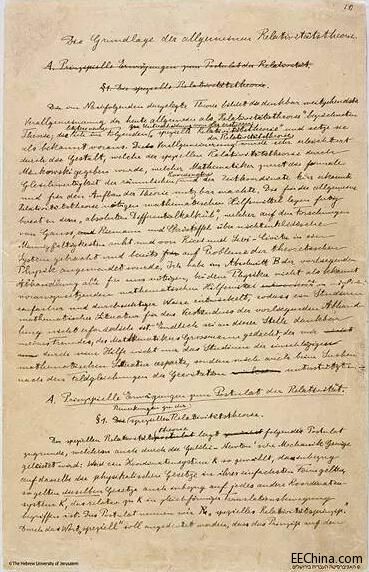 Die Grundlage der allgemeinen Relativitätstheorie.
A. Prinzipielle Erwägungen zum Postulat der Relativität.
§1. Die spezielle Relativitätstheorie.
Die im Nachfolgenden dargelegte Theorie bildet die denkbar weitgehendste
Verallgemeinerung der heute allgemein als "Relativitätstheorie" bezeichneten
Theorie; die im folgenden "spezielle Relativitätstheorie" und setze sie
als bekannt voraus. Verallgemeinerung wurde sehr erleichtert
durch die Gestalt, welche der speziellen Relativitätstheorie durch
Minkowski gegeben wurde, welcher Mathematiker zuerst die formale
Gleichwertigkeit der räumlichen und der Zeitkoordinate klar erkannte
und für den Aufbau der Theorie nutzbar machte. Die für die allgemeine
Relativitätstheorie nötigen mathematischen Hilfsmittel lagen fertig
bereit in dem "absoluten Differentialkalkül", welcher auf den Forschungen
von Gauss, Riemann und Christoffel über nichteuklidische
Mannigfaltigkeiten ruht und von Ricci und Levi-Civita in ein
System gebracht und bereits auf Probleme der theoretischen
Physik angewendet wurde. Ich habe im Abschnitt B der vorliegenden
Abhandlung alle für uns nötigen, bei dem Physiker nicht als bekannt
vorauszusetzenden mathematischen Hilfsmittel
einfacher und durchsichtiger Weise entwickelt, sodass ein Studium
mathematischer Literatur für das Verständnis der vorliegenden Abhand-
lung nicht erforderlich ist. Endlich sei an dieser Stelle dankbar
meines Freundes, des Mathematikers Grossmann gedacht, der
durch seine Hilfe nicht nur das Studium der einschlägigen
mathematischen Literatur ersparte, sondern mich auch beim Suchen
nach den Feldgleichungen der Gravitation unterstützte.
A. Prinzipielle Erwägungen zum Postulat der Relativität.
Bemerkungen zu der
§1. Die spezielle Relativitätstheorie.
Der speziellen Relativitätstheorie liegt folgendes Postulat
zugrunde, welchem auch durch die Galilei-Newton'sche Mechanik Genüge
geleistet wird: Wird ein Koordinatensystem K so gewählt, dass inbezug
auf dasselbe die physikalischen Gesetze in ihrer einfachsten Form gelten,
so gelten dieselben Gesetze auch inbezug auf jedes andere Koordinaten-
system K', das relativ zu K in gleichförmiger Translationsbewegung
begriffen ist. Dies Postulat nennen wir "spezielles Relativitätsprinzip".
Durch das Wort "speziell" soll angedeutet werden, dass das Prinzip auf den
©The Hebrew University of Jerusalem
EEChina.com